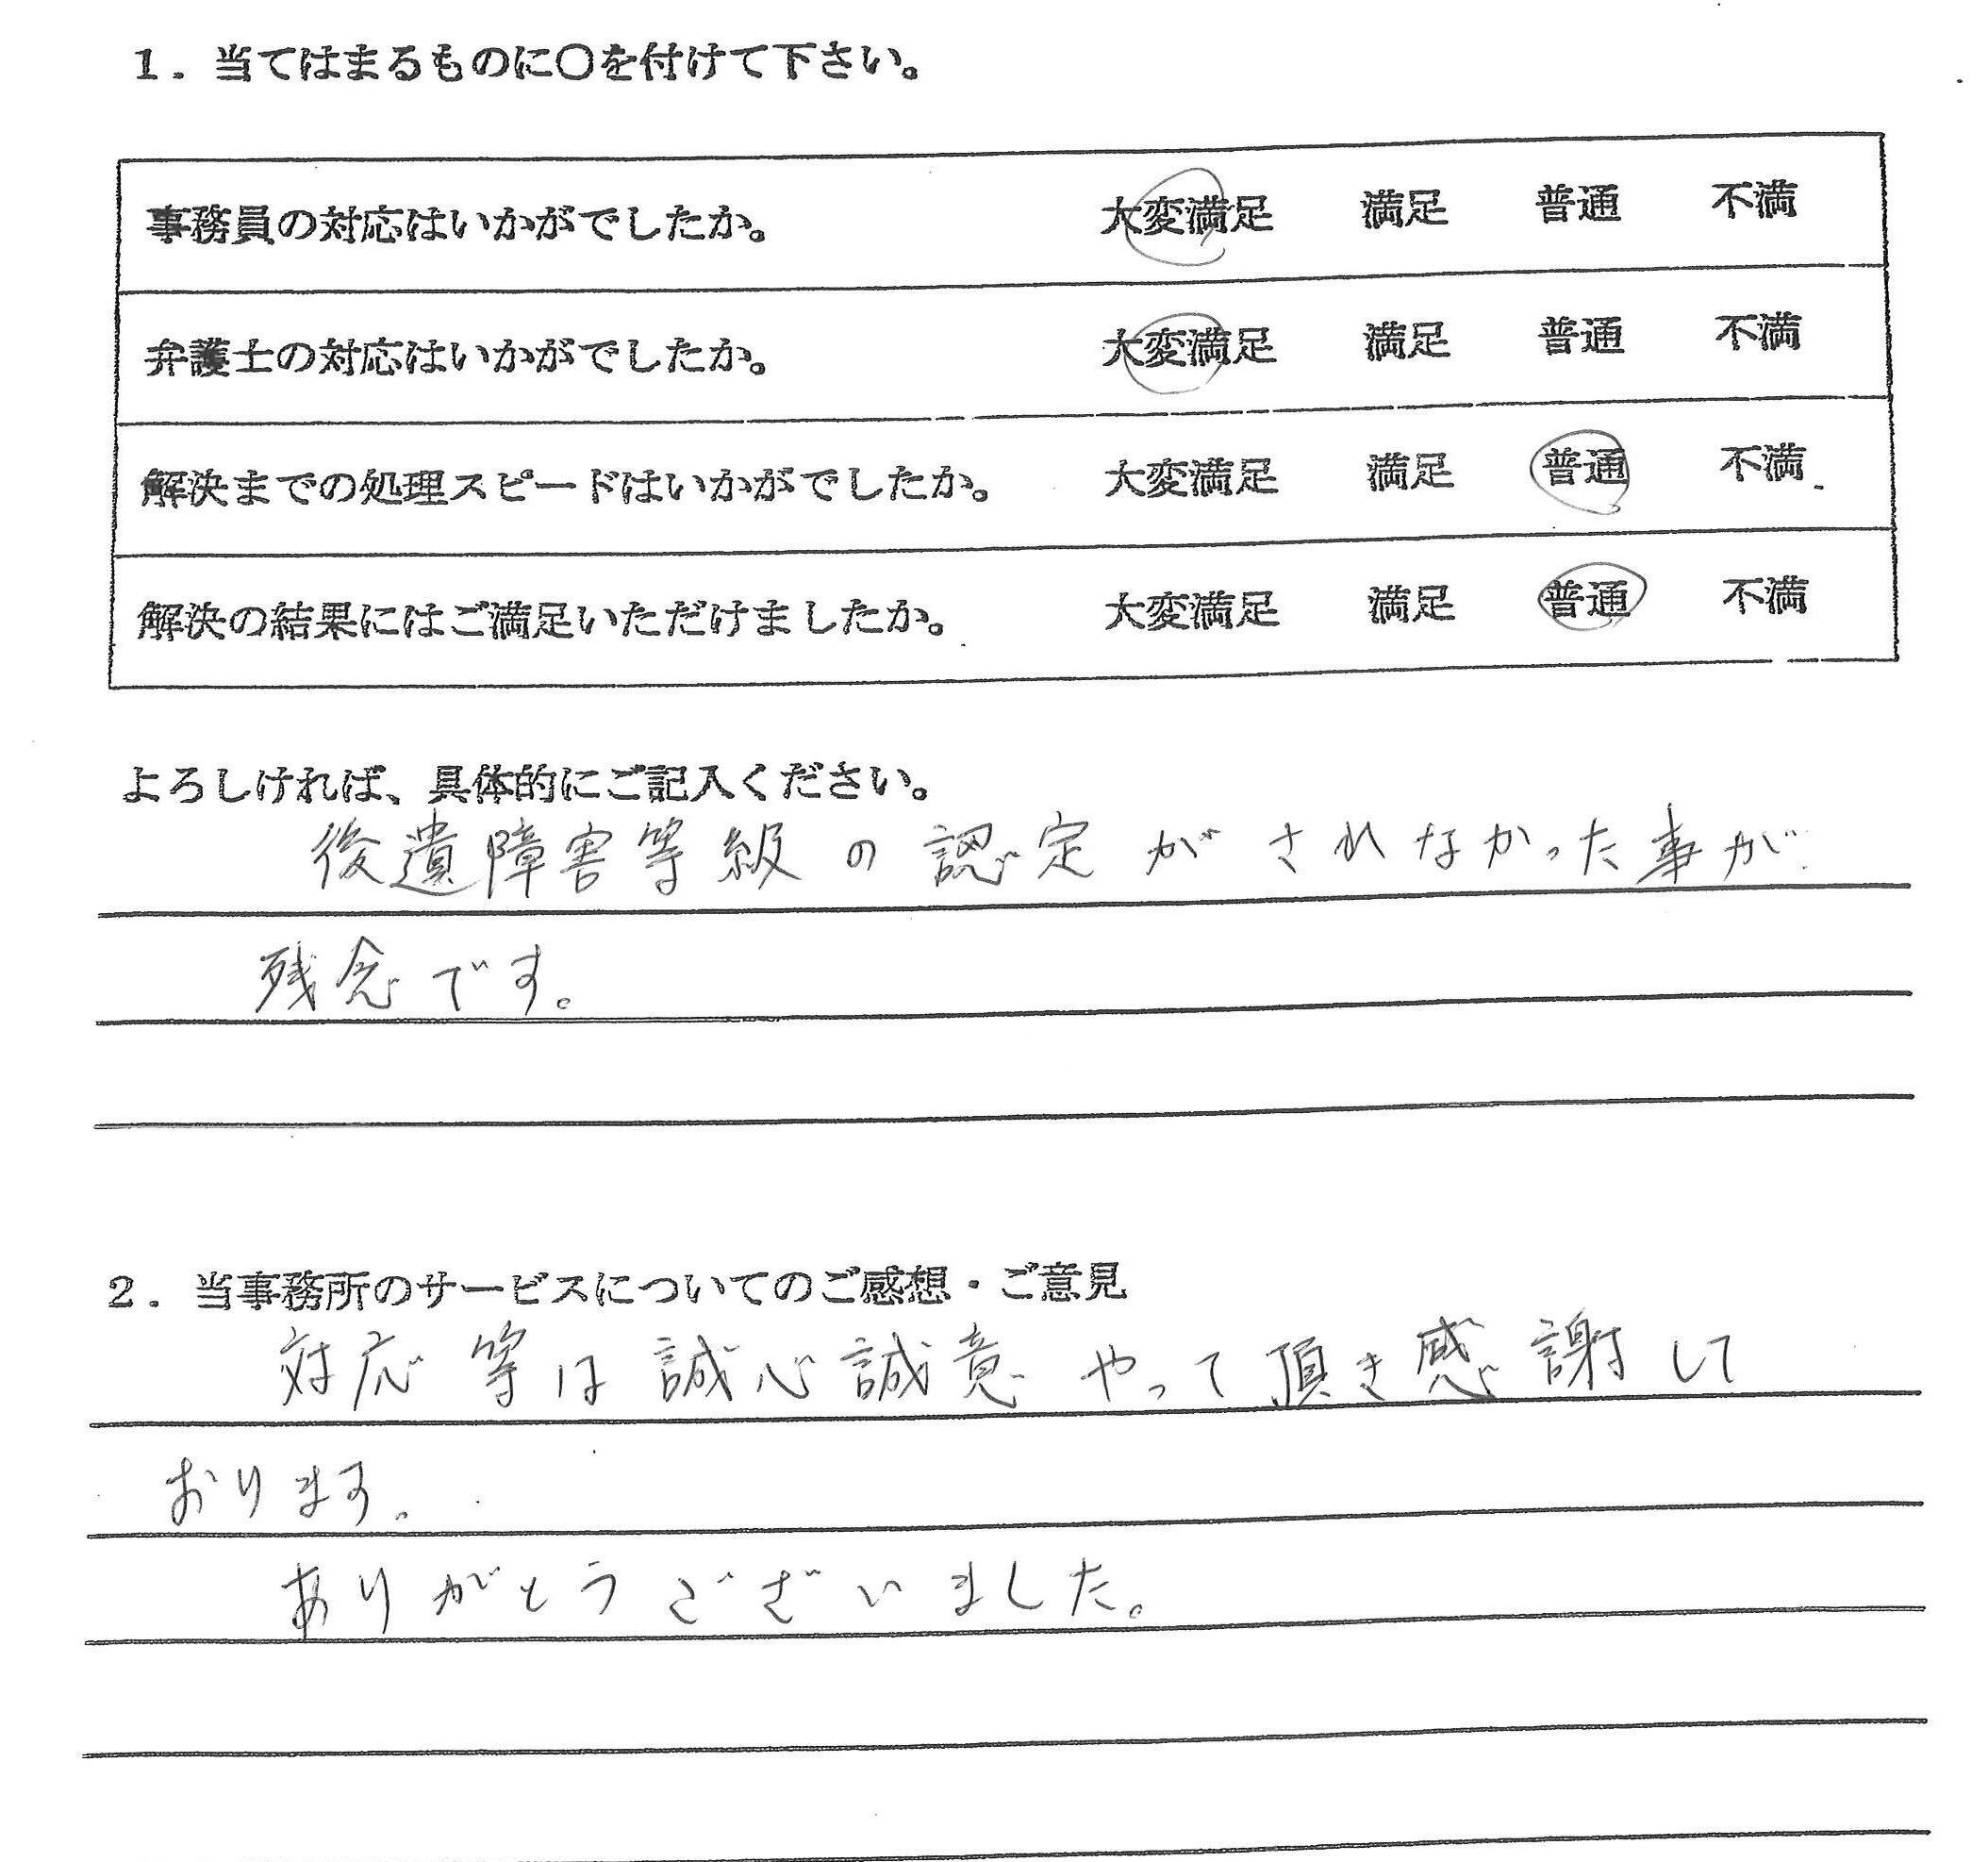 1. 当てはまるものに〇を付けて下さい。
事務員の対応はいかがでしたか。 大変満足 満足 普通 不満
弁護士の対応はいかがでしたか。 大変満足 満足 普通 不満
解決までの処理スピードはいかがでしたか。 大変満足 満足 普通 不満
解決の結果にはご満足いただけましたか。 大変満足 満足 普通 不満
よろしければ、具体的にご記入ください。
後遺障害等級の認定がされなかった事が
残念です。
2. 当事務所のサービスについてのご感想・ご意見
対応等は誠心誠意やって頂き感謝して
おります。
ありがとうございました。